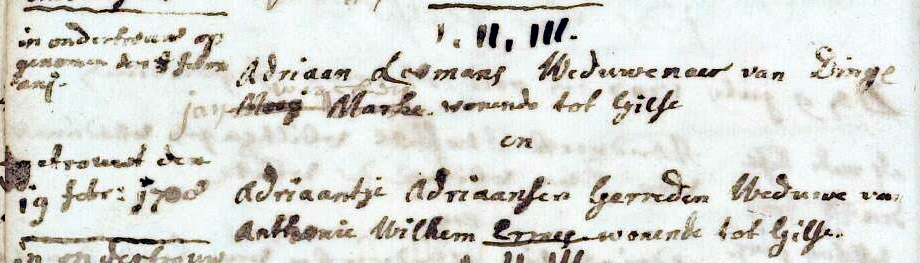 I. II. III.
in ondertrouw op
genomen den febru
arij.
Adriaan Leomans Weduwenaer van Dinge
Marke. wonende tot Gilse
en
getrouwt den
19 febr: 1708
Adriaantje Adriaansen Gerreden Weduwe van
Anthonie Wilhem wonende tot Gilse.
in ondertrouw